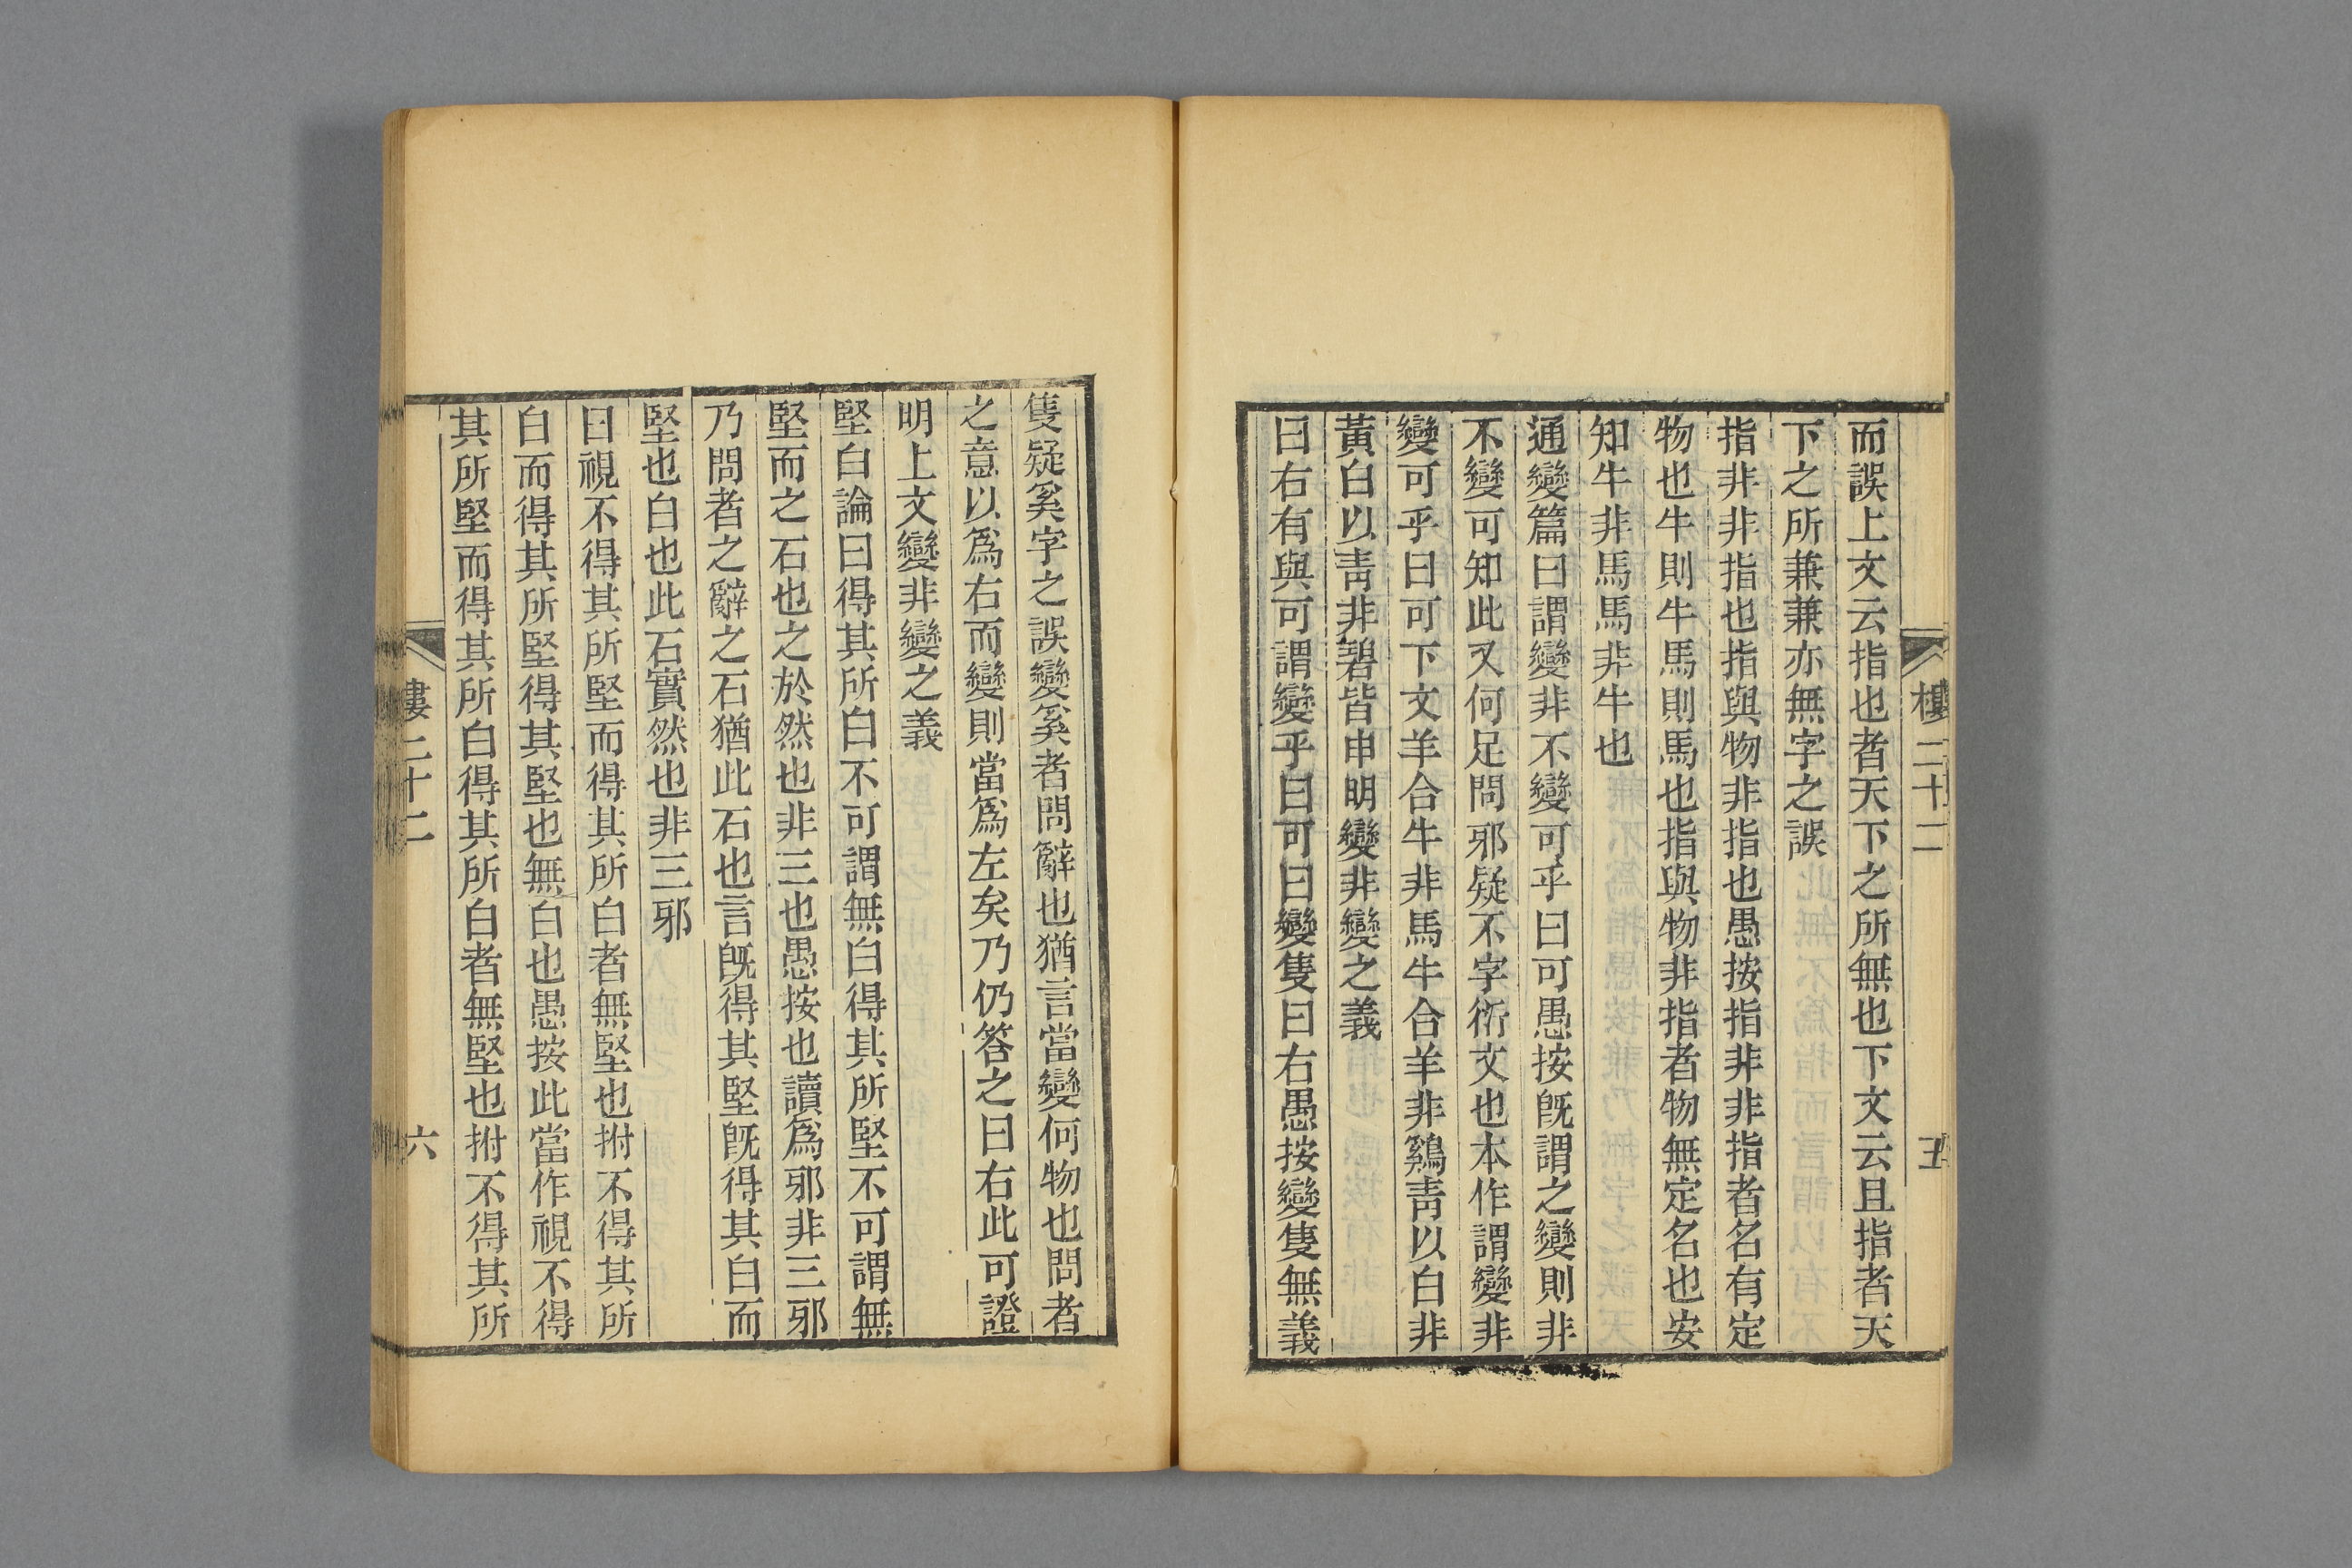 樓二十二
五
而誤上文云指也者天下之所無也下文云且指者天
下之所兼兼亦無字之誤
指非非指也指與物非指也愚按指非非指者名有定
物也牛則牛馬則馬也指與物非指者物無定名也安
知牛非馬馬非牛也
通變篇曰謂變非不變可乎曰可愚按既謂之變則非
不變可知此又何足問邪疑不字衍文也本作謂變非
變可乎曰可下文羊合牛非馬牛合羊非鷄青以白非
黃白以青非碧皆申明變非變之義
曰右有與可謂變乎曰可曰變隻曰右愚按變隻無義
隻疑奚字之誤變奚者問辭也猶言當變何物也問者
之意以爲右而變則當爲左矣乃仍答之曰右此可證
明上文變非變之義
堅白論曰得其所白不可謂無白得其所堅不可謂無
堅而之石也之於然也非三也愚按也讀爲邪非三邪
乃問者之辭之石猶此石也言旣得其堅旣得其白而
堅也白也此石實然也非三邪
曰視不得其所堅而得其所白者無堅也拊不得其所
白而得其所堅得其堅也無白也愚按此當作視不得
其所堅而得其所白得其所白者無堅也拊不得其所
樓二十二
六